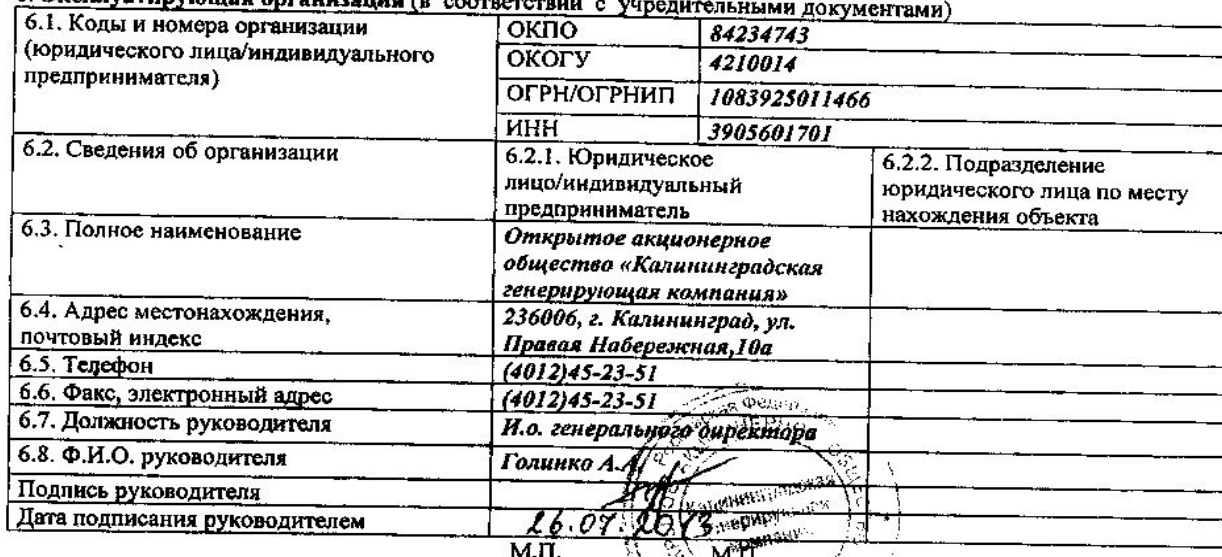 6. Эксплуатирующая организация (в соответствии с учредительными документами)
6.1. Коды и номера организации
(юридического лица/индивидуального
предпринимателя)
ОКПО 84234743
ОКОГУ 4210014
ОГРН/ОГРНИП 1083925011466
ИНН 3905601701
6.2. Сведения об организации
6.2.1. Юридическое
лицо/индивидуальный
предприниматель
6.2.2. Подразделение
юридического лица по месту
нахождения объекта
6.3. Полное наименование
Открытое акционерное
общество «Калининградская
генерирующая компания»
6.4. Адрес местонахождения,
почтовый индекс
236006, г. Калининград, ул.
Правая Набережная,10а
6.5. Телефон (4012)45-23-51
6.6. Факс, электронный адрес (4012)45-23-51
6.7. Должность руководителя И.о. генерального директора
6.8. Ф.И.О. руководителя Голинко А.
Подпись руководителя
Дата подписания руководителем 26.07.2013
М.П. М.П.
Калининградская
генерирующая
компания